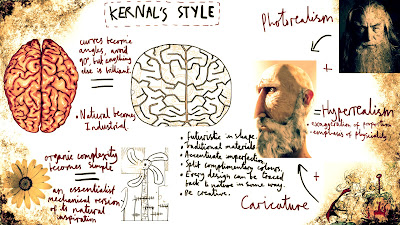 KERNAL'S STYLE
Photorealism
curves become
angles, avoid
90°, but anything
else is brilliant.
+
=
• Natural becomes
Industrial.
= Hyperrealism
- exaggeration of proportion
- emphasis of physicality
organic complexity
becomes simple
=
an essentialist
mechanical version
of its natural
inspiration
• Futuristic in shape.
• Traditional materials.
• Accentuate imperfection.
• Split complimentary colours.
• Every design can be traced
back to nature in some way.
• Be creative.
+
Caricature